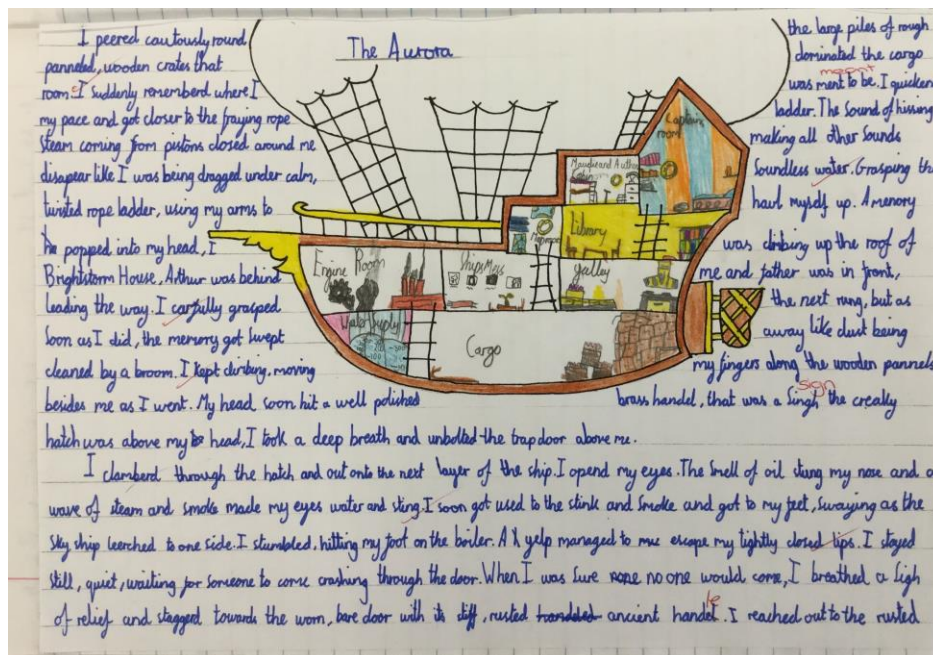 The Aurora
I peered cautously round the large piles of rough
panneled, wooden crates that dominated the cargo
room. I suddenly rememberd where I was ment to be. I quicken
meant
my pace and got closer to the fraying rope ladder. The sound of hissing
steam coming from pistons closed around me making all other sounds
disapear like I was being dragged under calm, soundless water. Grasping the
twisted rope ladder, using my arms to haul myself up. A memory
popped into my head, I was climbing up the roof of
Brightstorm House, Arthur was behind me and father was in front,
leading the way. I carfully grasped the next rung, but as
soon as I did, the memory got swept away like dust being
cleaned by a broom. I kept climbing, moving my fingers along the wooden pannels
besides me as I went. My head soon hit a well polished brass handel, that was a singh the creaky
sign
hatch was above my head, I took a deep breath and unbolted the trapdoor above me.
I clamberd through the hatch and out onto the next layer of the ship. I opend my eyes. The smell of oil stung my nose and a
wave of steam and smoke made my eyes water and sting. I soon got used to the stink and smoke and got to my feet, swaying as the
sky ship leerched to one side. I stumbled, hitting my foot on the boiler. A yelp managed to escape my tightly closed lips. I stayed
still, quiet, waiting for someone to come crashing through the door. When I was sure no one would come, I breathed a sigh
of relief and staggerd towards the worn, bare door with its stiff, rusted ancient handel. I reached out to the rusted
le
Captains room
Maudie and Arthur
Map room
Library
Engine Room
Ships Mess
galley
Water Supply
Cargo